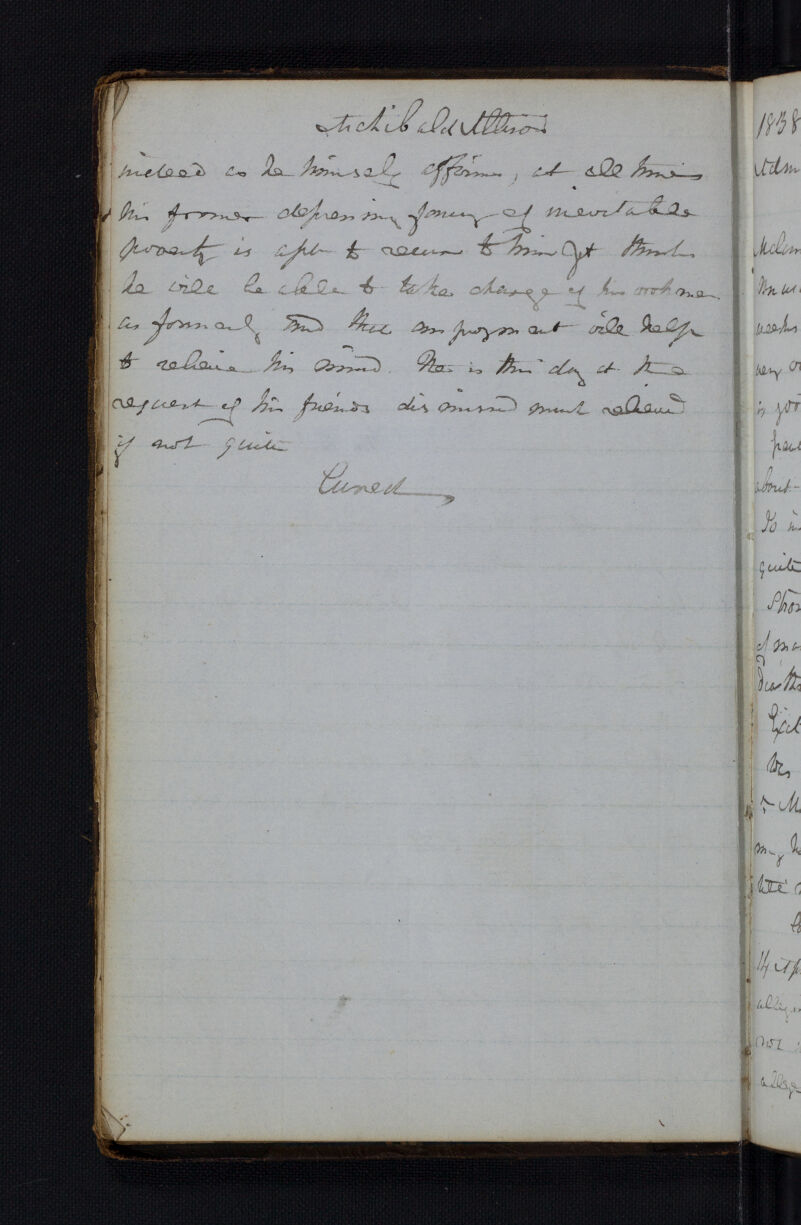 Archibald Allison
indeed as he himself affirms, at all times
his former depressing fancy of inevitable
poverty is apt to recur to him yet thinks
he will be able to take charge of his workmen
as formerly and that employment will help
to relieve his mind. He is this day at the
request of his friends dismissed much relieved
if not quite
Cured
1838
Adm
weeks
very
is
about
quite
of
may
late
14 Ap
not